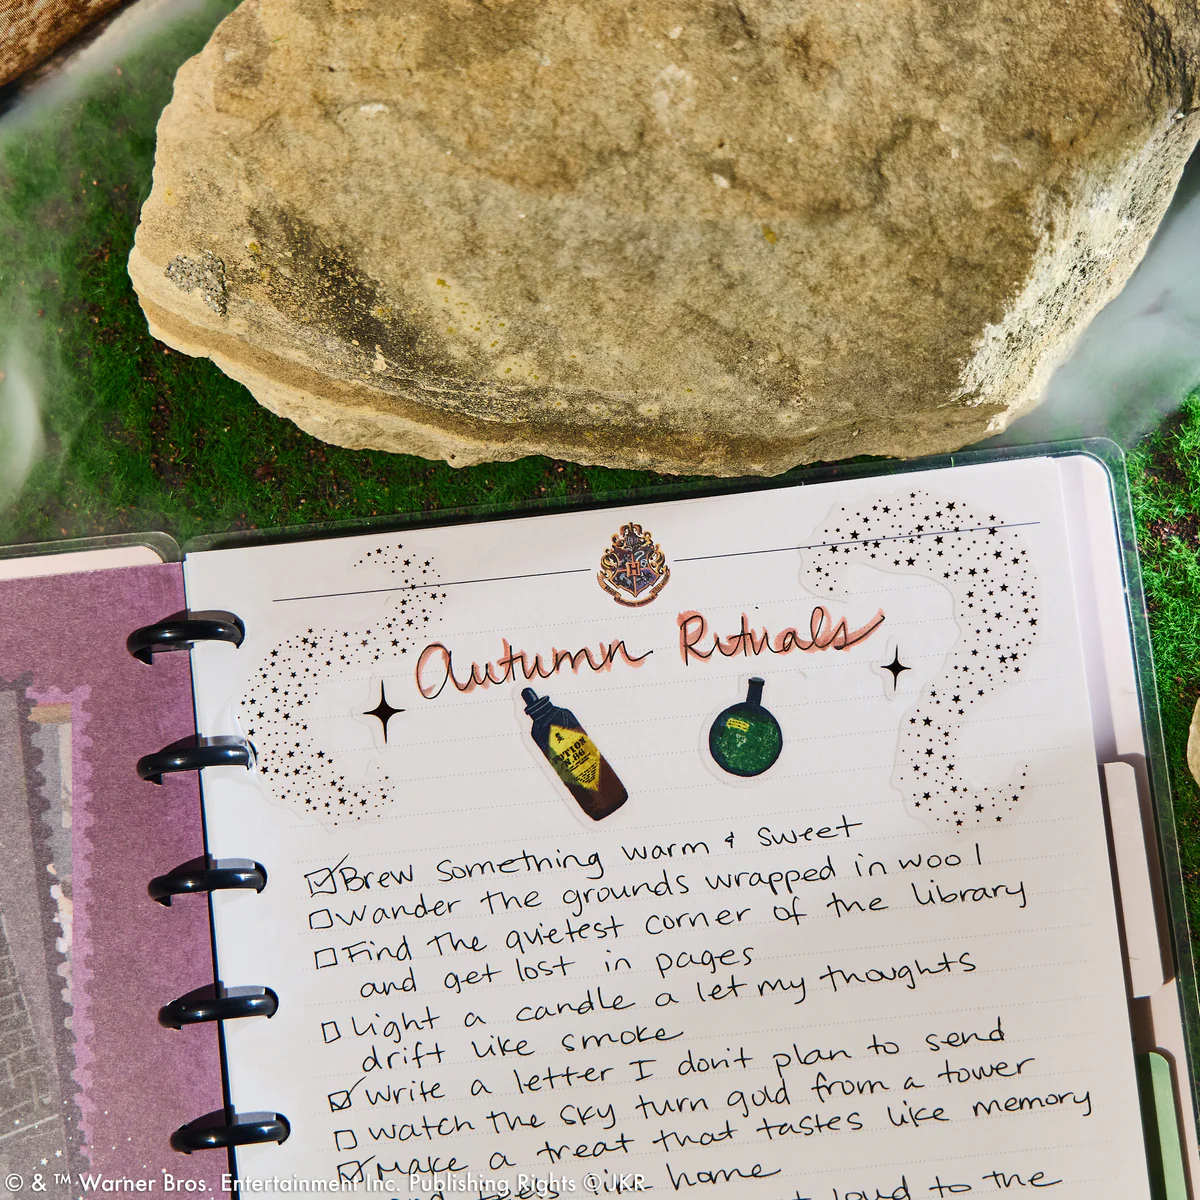 Autumn Rituals
POTION
No. 86
Brew something warm & sweet
Wander the grounds wrapped in wool
Find the quietest corner of the library
and get lost in pages
Light a candle a let my thoughts
drift like smoke
Write a letter I don't plan to send
Watch the sky turn gold from a tower
Make a treat that tastes like memory
and feels like home
loud to the
© & ™ Warner Bros. Entertainment Inc. Publishing Rights © JKR